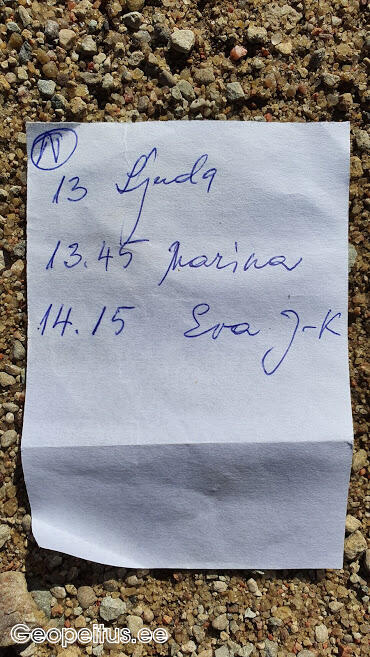 N
13 Ljuda
13.45 Marina
14.15 Eva J-K
Geopeitus.ee